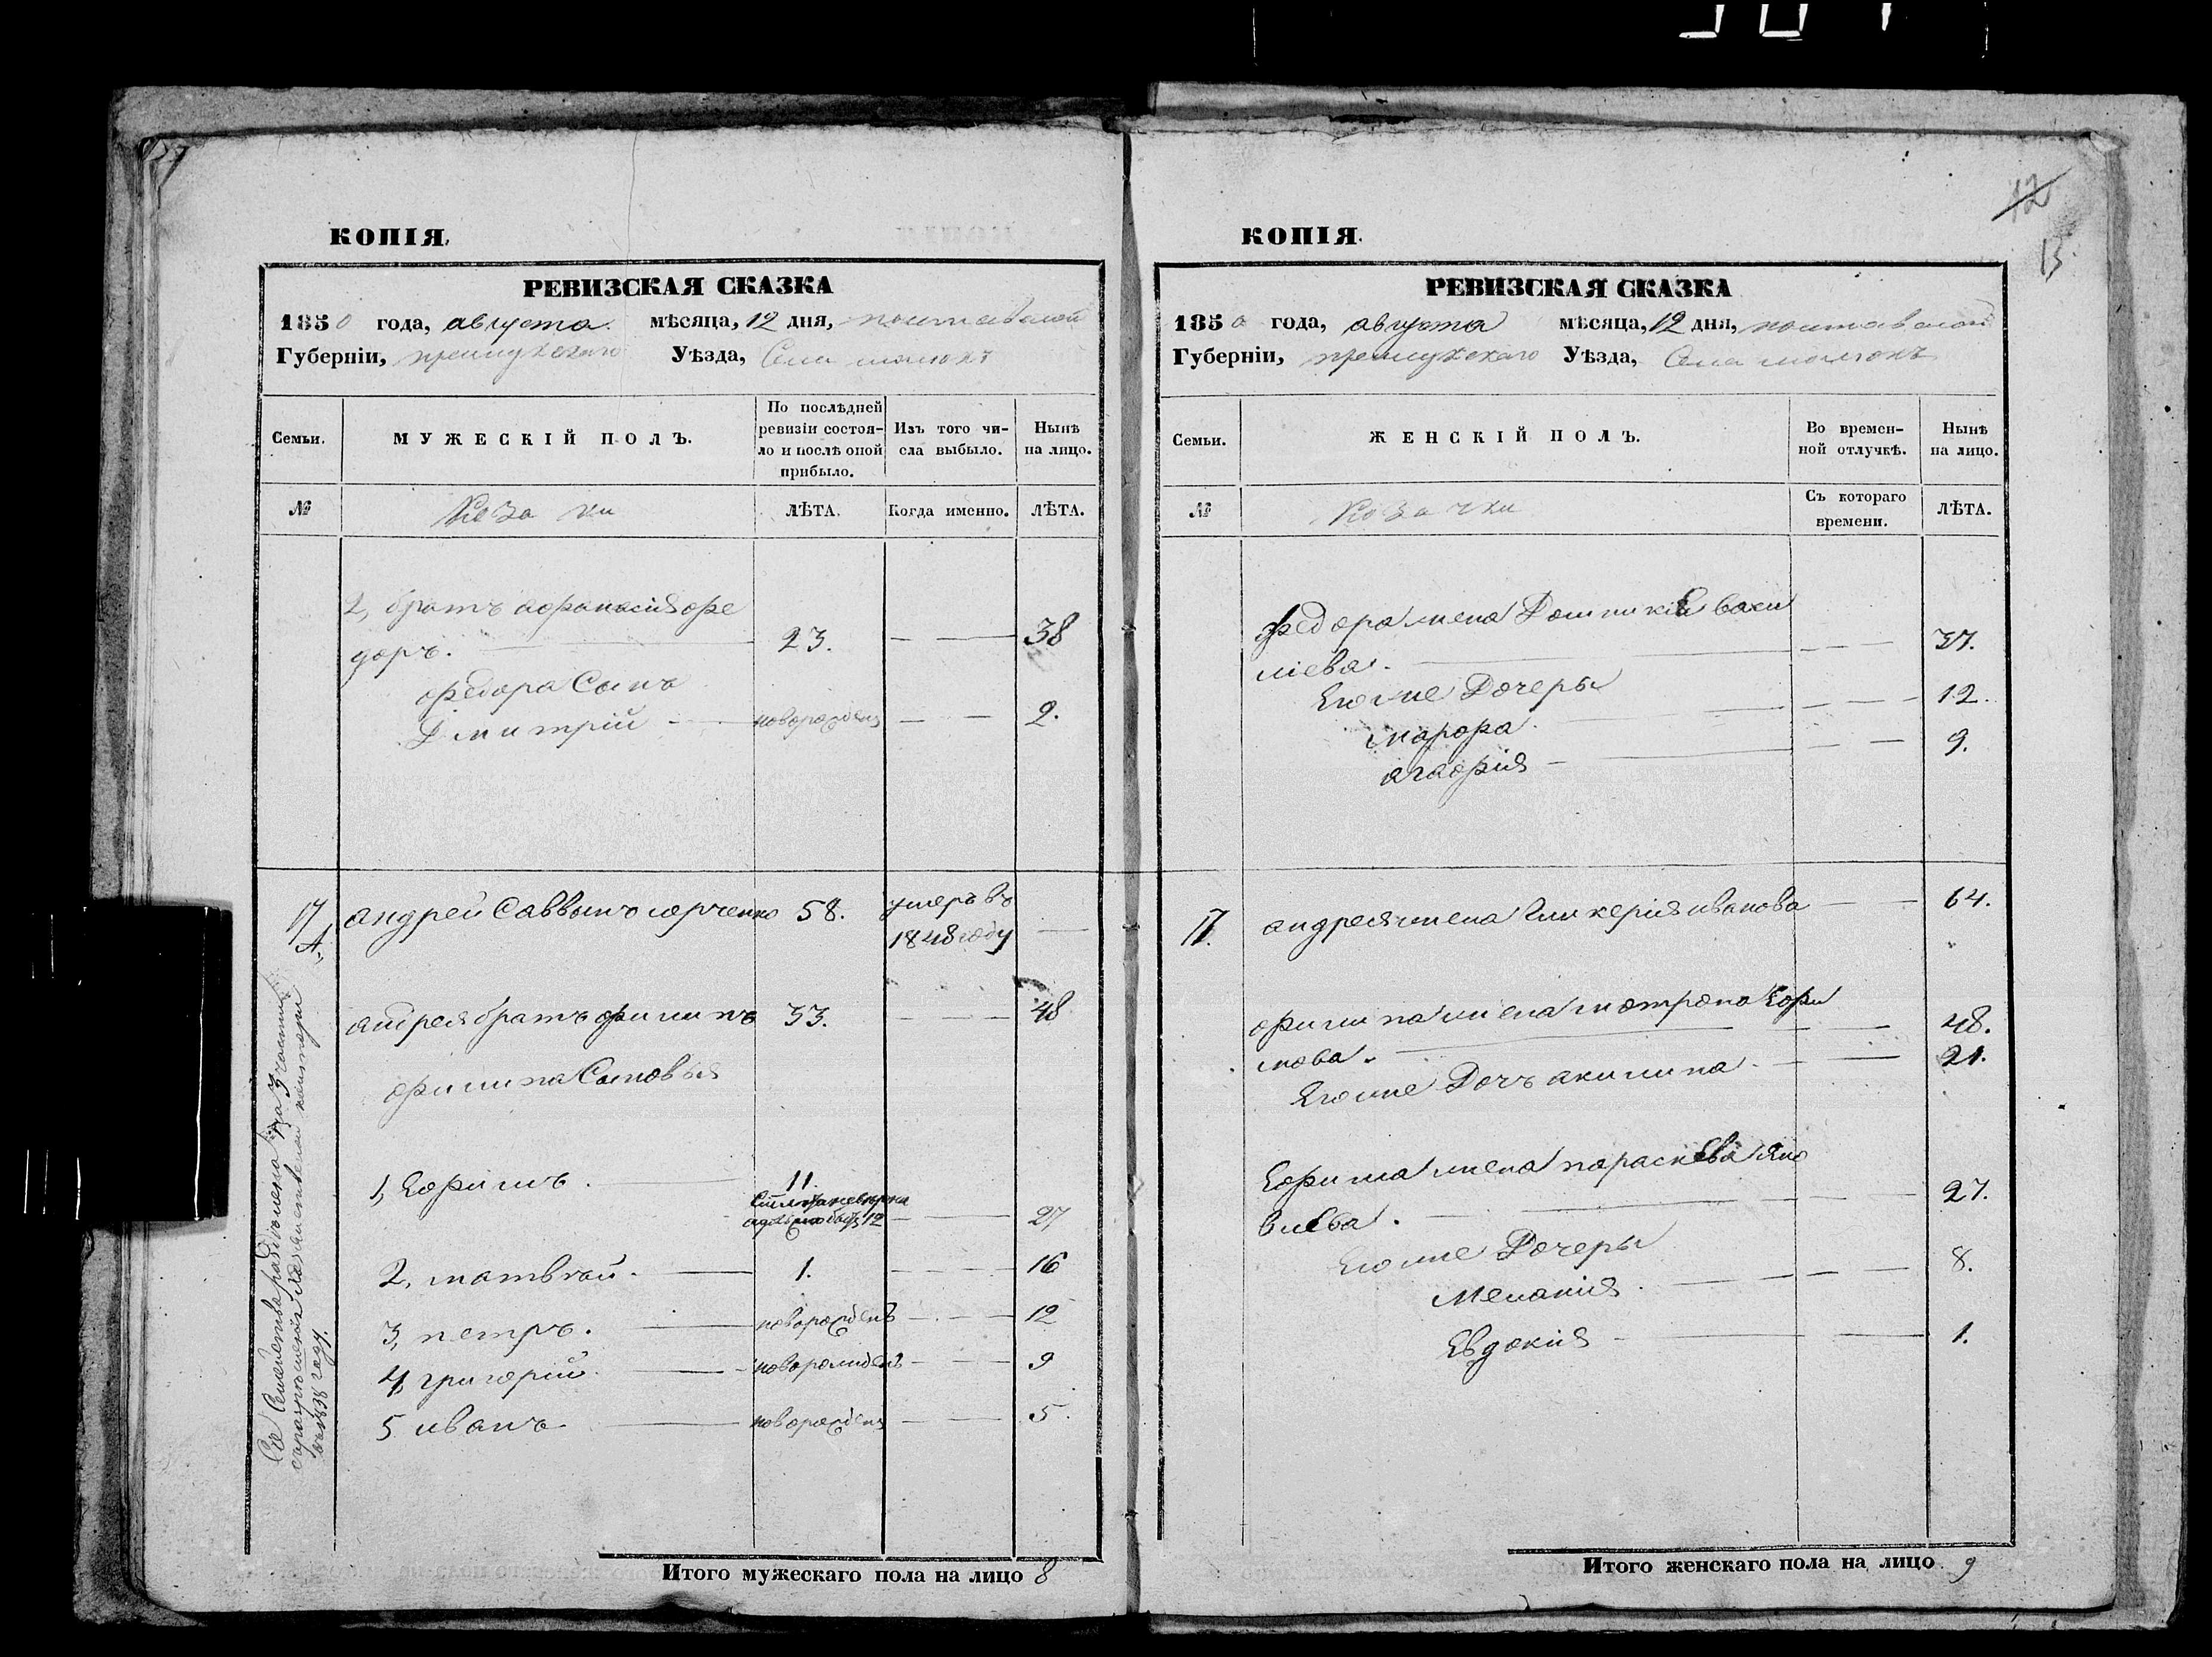 КОПІЯ.
РЕВИЗСКАЯ СКАЗКА
1850 года, августа мѣсяца, 12 дня, полтавской
Губерніи, прилукскаго Уѣзда, Села
Семьи.
МУЖЕСКІЙ ПОЛЪ.
По послѣдней ревизіи состояло и послѣ оной прибыло.
Изъ того числа выбыло.
Нынѣ на лицо.
№
Козаки
ЛѢТА.
Когда именно.
ЛѢТА.
2, братъ афанасія фе
доръ. 23. 38
федора Сынъ
Дмитрій новорожденъ 2.
17 андрей Саввинъ юрченко 58. умеръ въ
1848 году
андрея братъ филипъ 33. 48
филипа Сыновья
1, Ефимъ. 11.
27
2, матвѣй. 1. 16
3, петръ. новорожденъ 12
4, григорій новорожденъ 9
5 иванъ новорожденъ 5.
Итого мужескаго пола на лицо 8
12
13.
КОПІЯ.
РЕВИЗСКАЯ СКАЗКА
1850 года, августа мѣсяца, 12 дня, полтавской
Губерніи, прилукскаго Уѣзда, Села
Семьи.
ЖЕНСКІЙ ПОЛЪ.
Во временной отлучкѣ.
Нынѣ на лицо.
№
Козачки
Съ котораго времени.
ЛѢТА.
федора жена Домникія Васи
лієва. 37.
Єгоже Дочеры 12.
марфа
агафія 9.
17. андрея жена Гликерія иванова 64.
филипа жена матрона Ефи
мова. 48.
Єгоже Дочъ акилина 21.
Ефима жена параскева Яко
влева. 27.
Єгоже Дочеры
Меланія 8.
Евдокія 1.
Итого женскаго пола на лицо 9